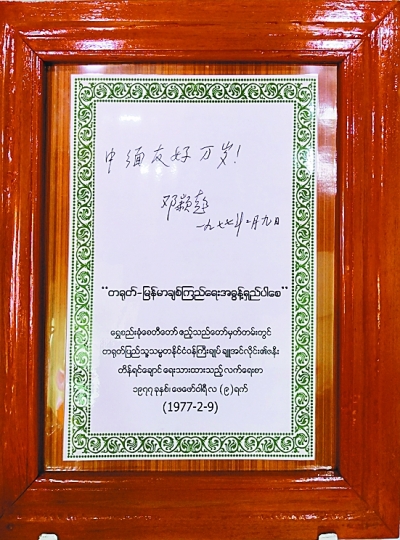 中缅友好万岁！
邓颖超
一九七七年二月九日
"တရုတ်-မြန်မာချစ်ကြည်ရေးအဓွန့်ရှည်ပါစေ"
ရွှေစည်းခုံစေတီတော် ဧည့်သည်တော်မှတ်တမ်းတွင်
တရုတ်ပြည်သူ့သမ္မတနိုင်ငံဝန်ကြီးချုပ် ချူအင်လိုင်း၏ဇနီး
တိန်ရင်ချောင် ရေးသားထားသည့် လက်ရေးစာ
၁၉၇၇ ခုနှစ်၊ ဖေဖော်ဝါရီလ (၉) ရက်
(1977-2-9)